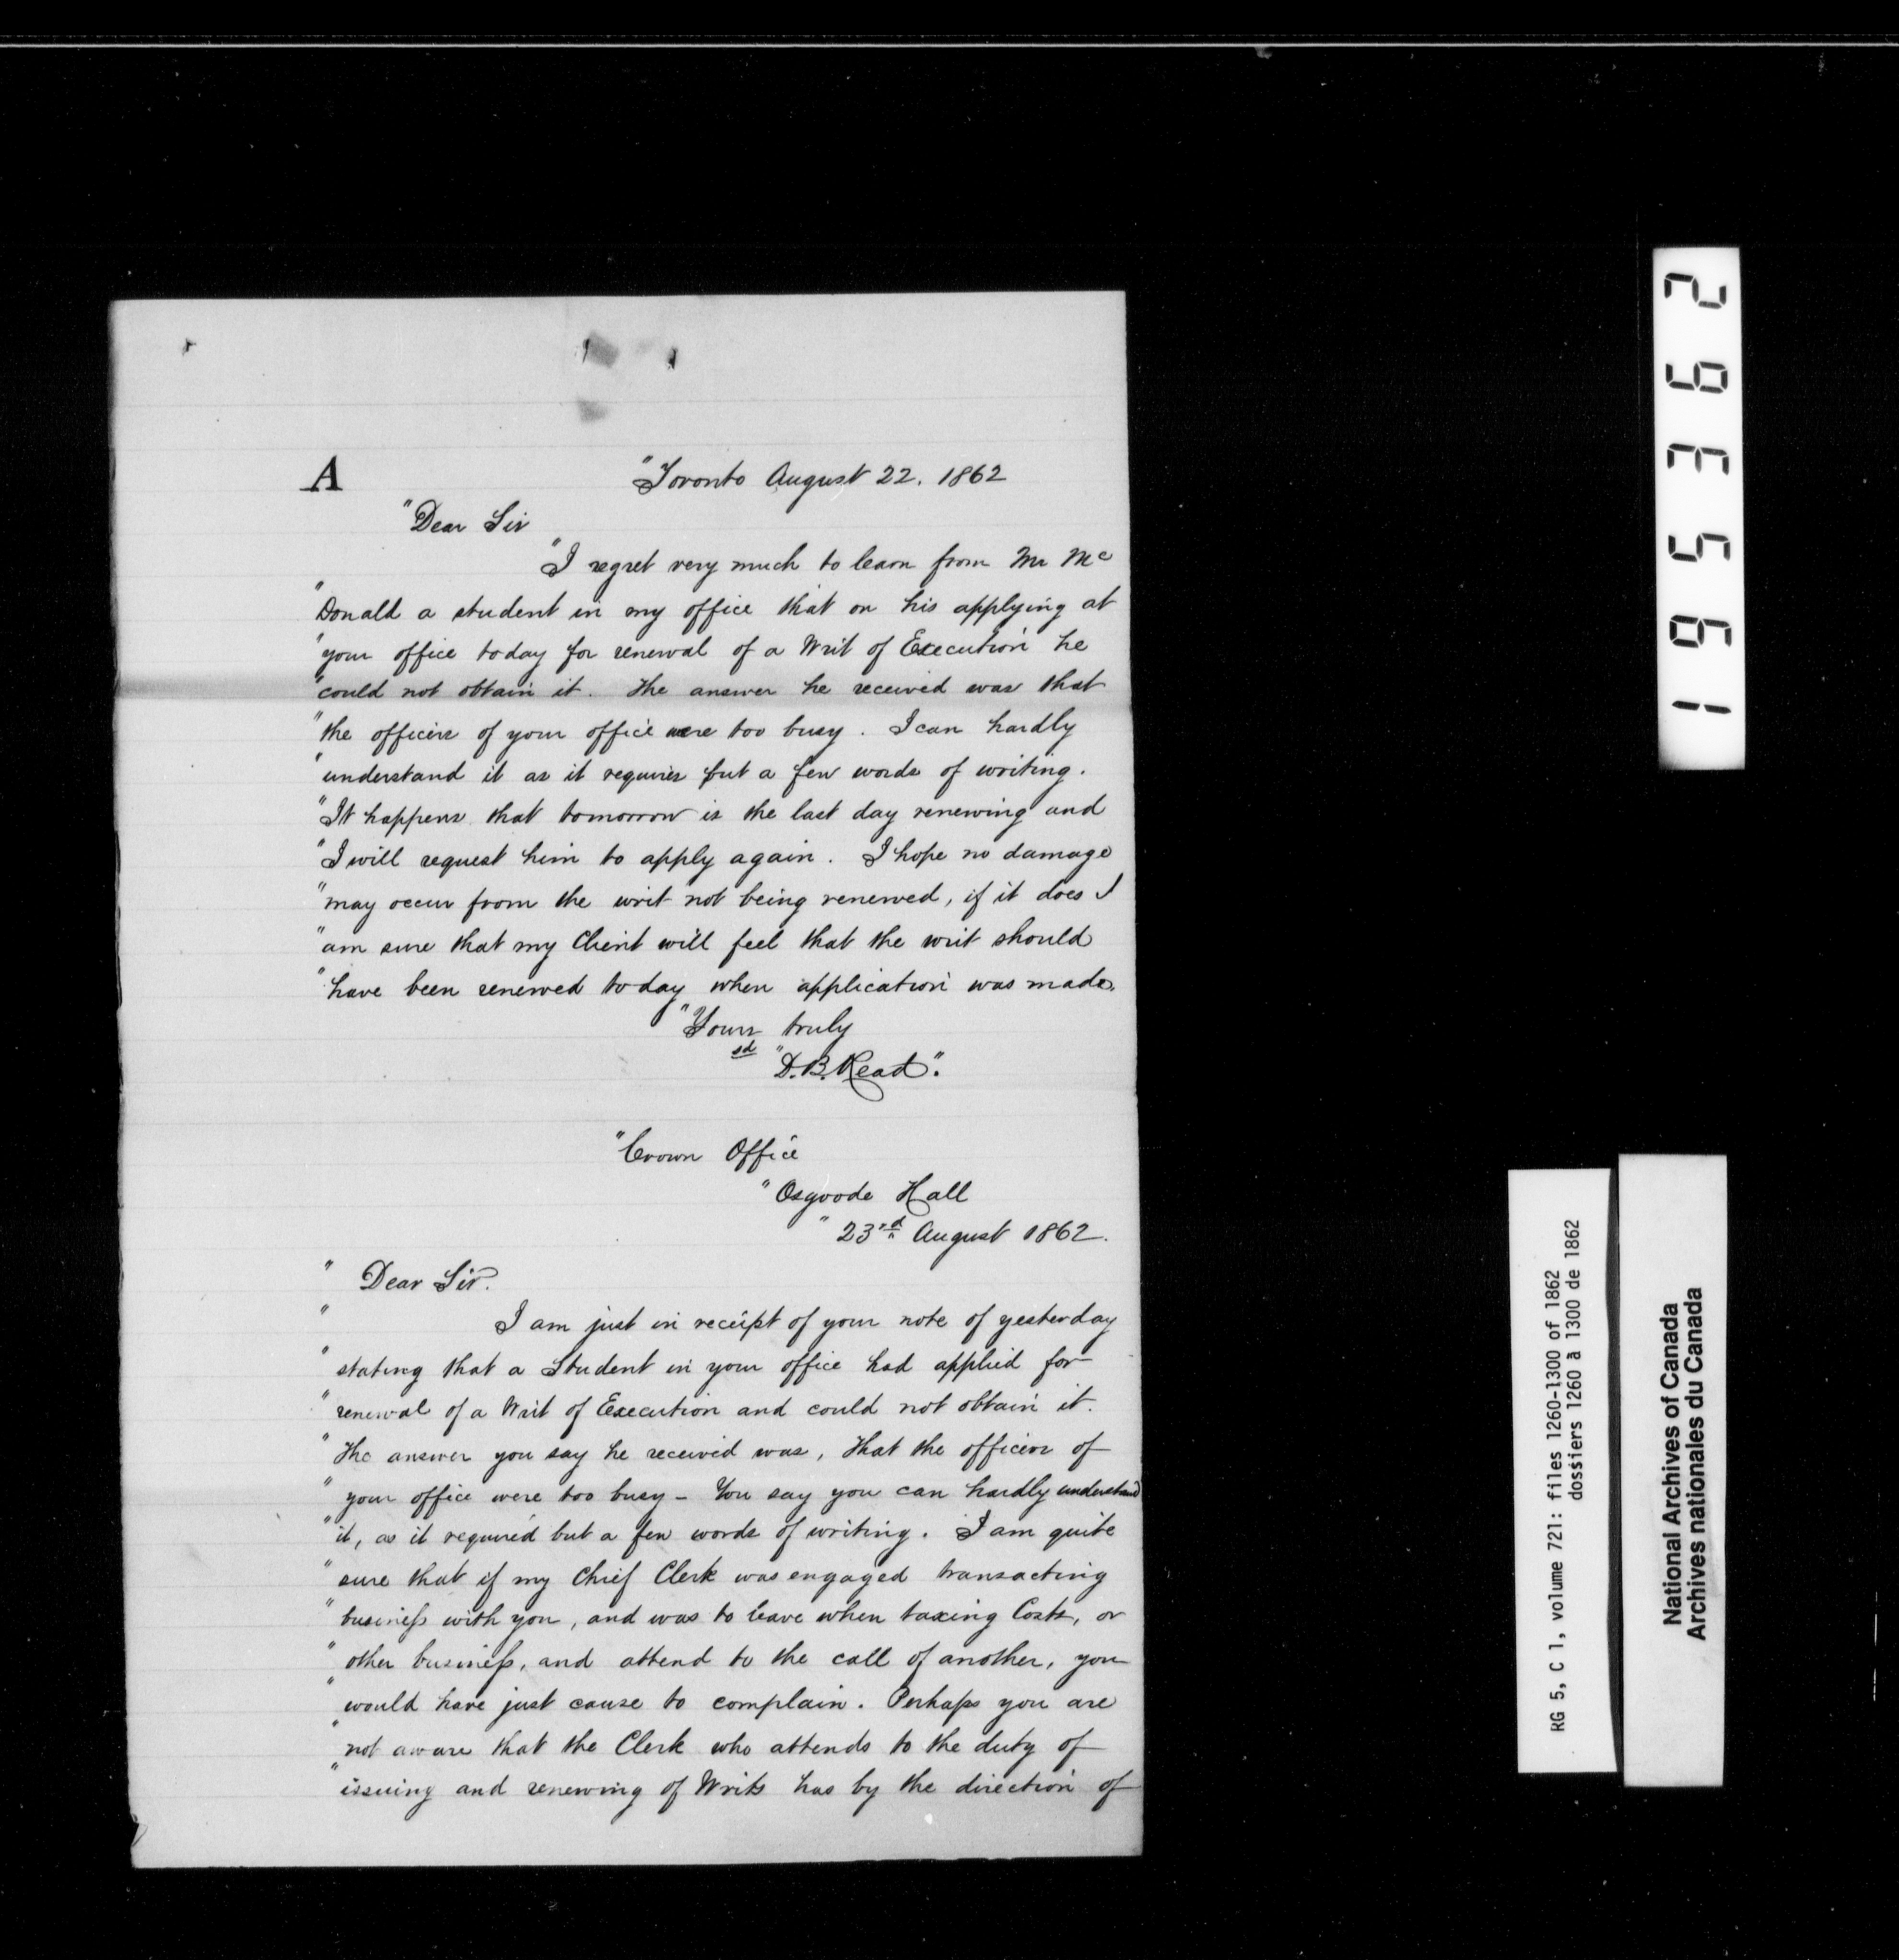 A
"Toronto August 22. 1862
"Dear Sir
"I regret very much to learn from Mr Mc
"Donald a student in my office that on his applying at
"your office today for renewal of a Writ of Execution he
"could not obtain it. The answer he received was that
"the officers of your office were too busy. I can hardly
"understand it as it requires but a few words of writing.
"It happens that tomorrow is the last day renewing and
"I will request him to apply again. I hope no damage
"may occur from the writ not being renewed, if it does I
"am sure that my Client will feel that the writ should
"have been renewed today when application was made.
"Yours truly
sd "D.B. Read".
"Crown Office
"Osgoode Hall
"23rd August 1862.
" Dear Sir.
" I am just in receipt of your note of yesterday
" stating that a Student in your office had applied for
" renewal of a Writ of Execution and could not obtain it.
" The answer you say he received was, that the officers of
" your office were too busy - You say you can hardly understand
" it, as it required but a few words of writing. I am quite
" sure that if my Chief Clerk was engaged transacting
" business with you, and was to leave when taxing Costs, or
" other business, and attend to the call of another, you
" would have just cause to complain. Perhaps you are
" not aware that the Clerk who attends to the duty of
" issuing and renewing of Writs has by the direction of
195362
RG 5, C 1, volume 721: files 1260-1300 of 1862
dossiers 1260 à 1300 de 1862
National Archives of Canada
Archives nationales du Canada